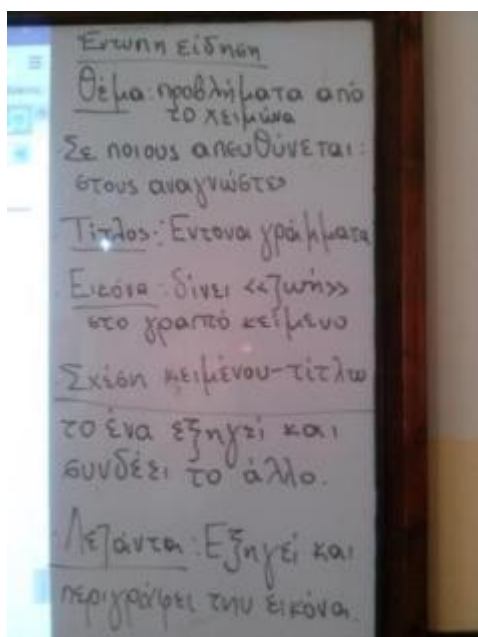 Έντυπη είδηση
Θέμα: προβλήματα από
το χειμώνα
Σε ποιους απευθύνεται:
στους αναγνώστες
Τίτλος: Έντονα γράμματα
Εικόνα: δίνει <<ζωή>>
στο γραπτό κείμενο
Σχέση κειμένου-τίτλω
το ένα εξηγεί και
συνδέει το άλλο.
Λεζάντα: Εξηγεί και
περιγράφει την εικόνα.